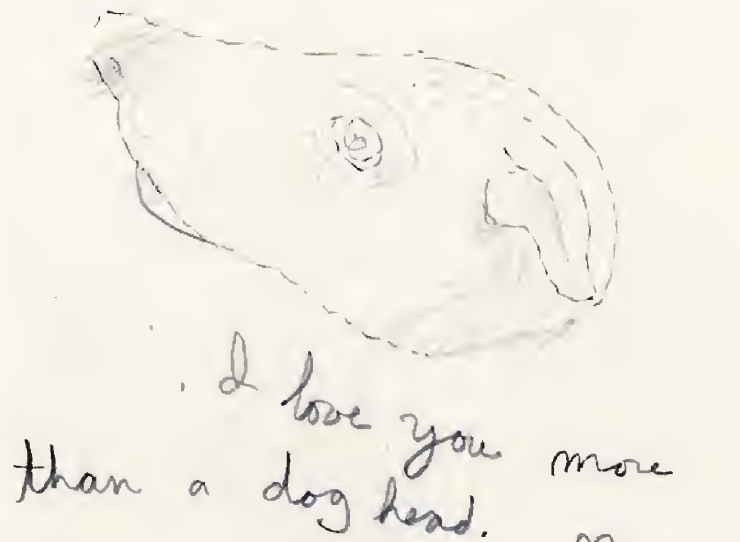 I love you more
than a dog head.